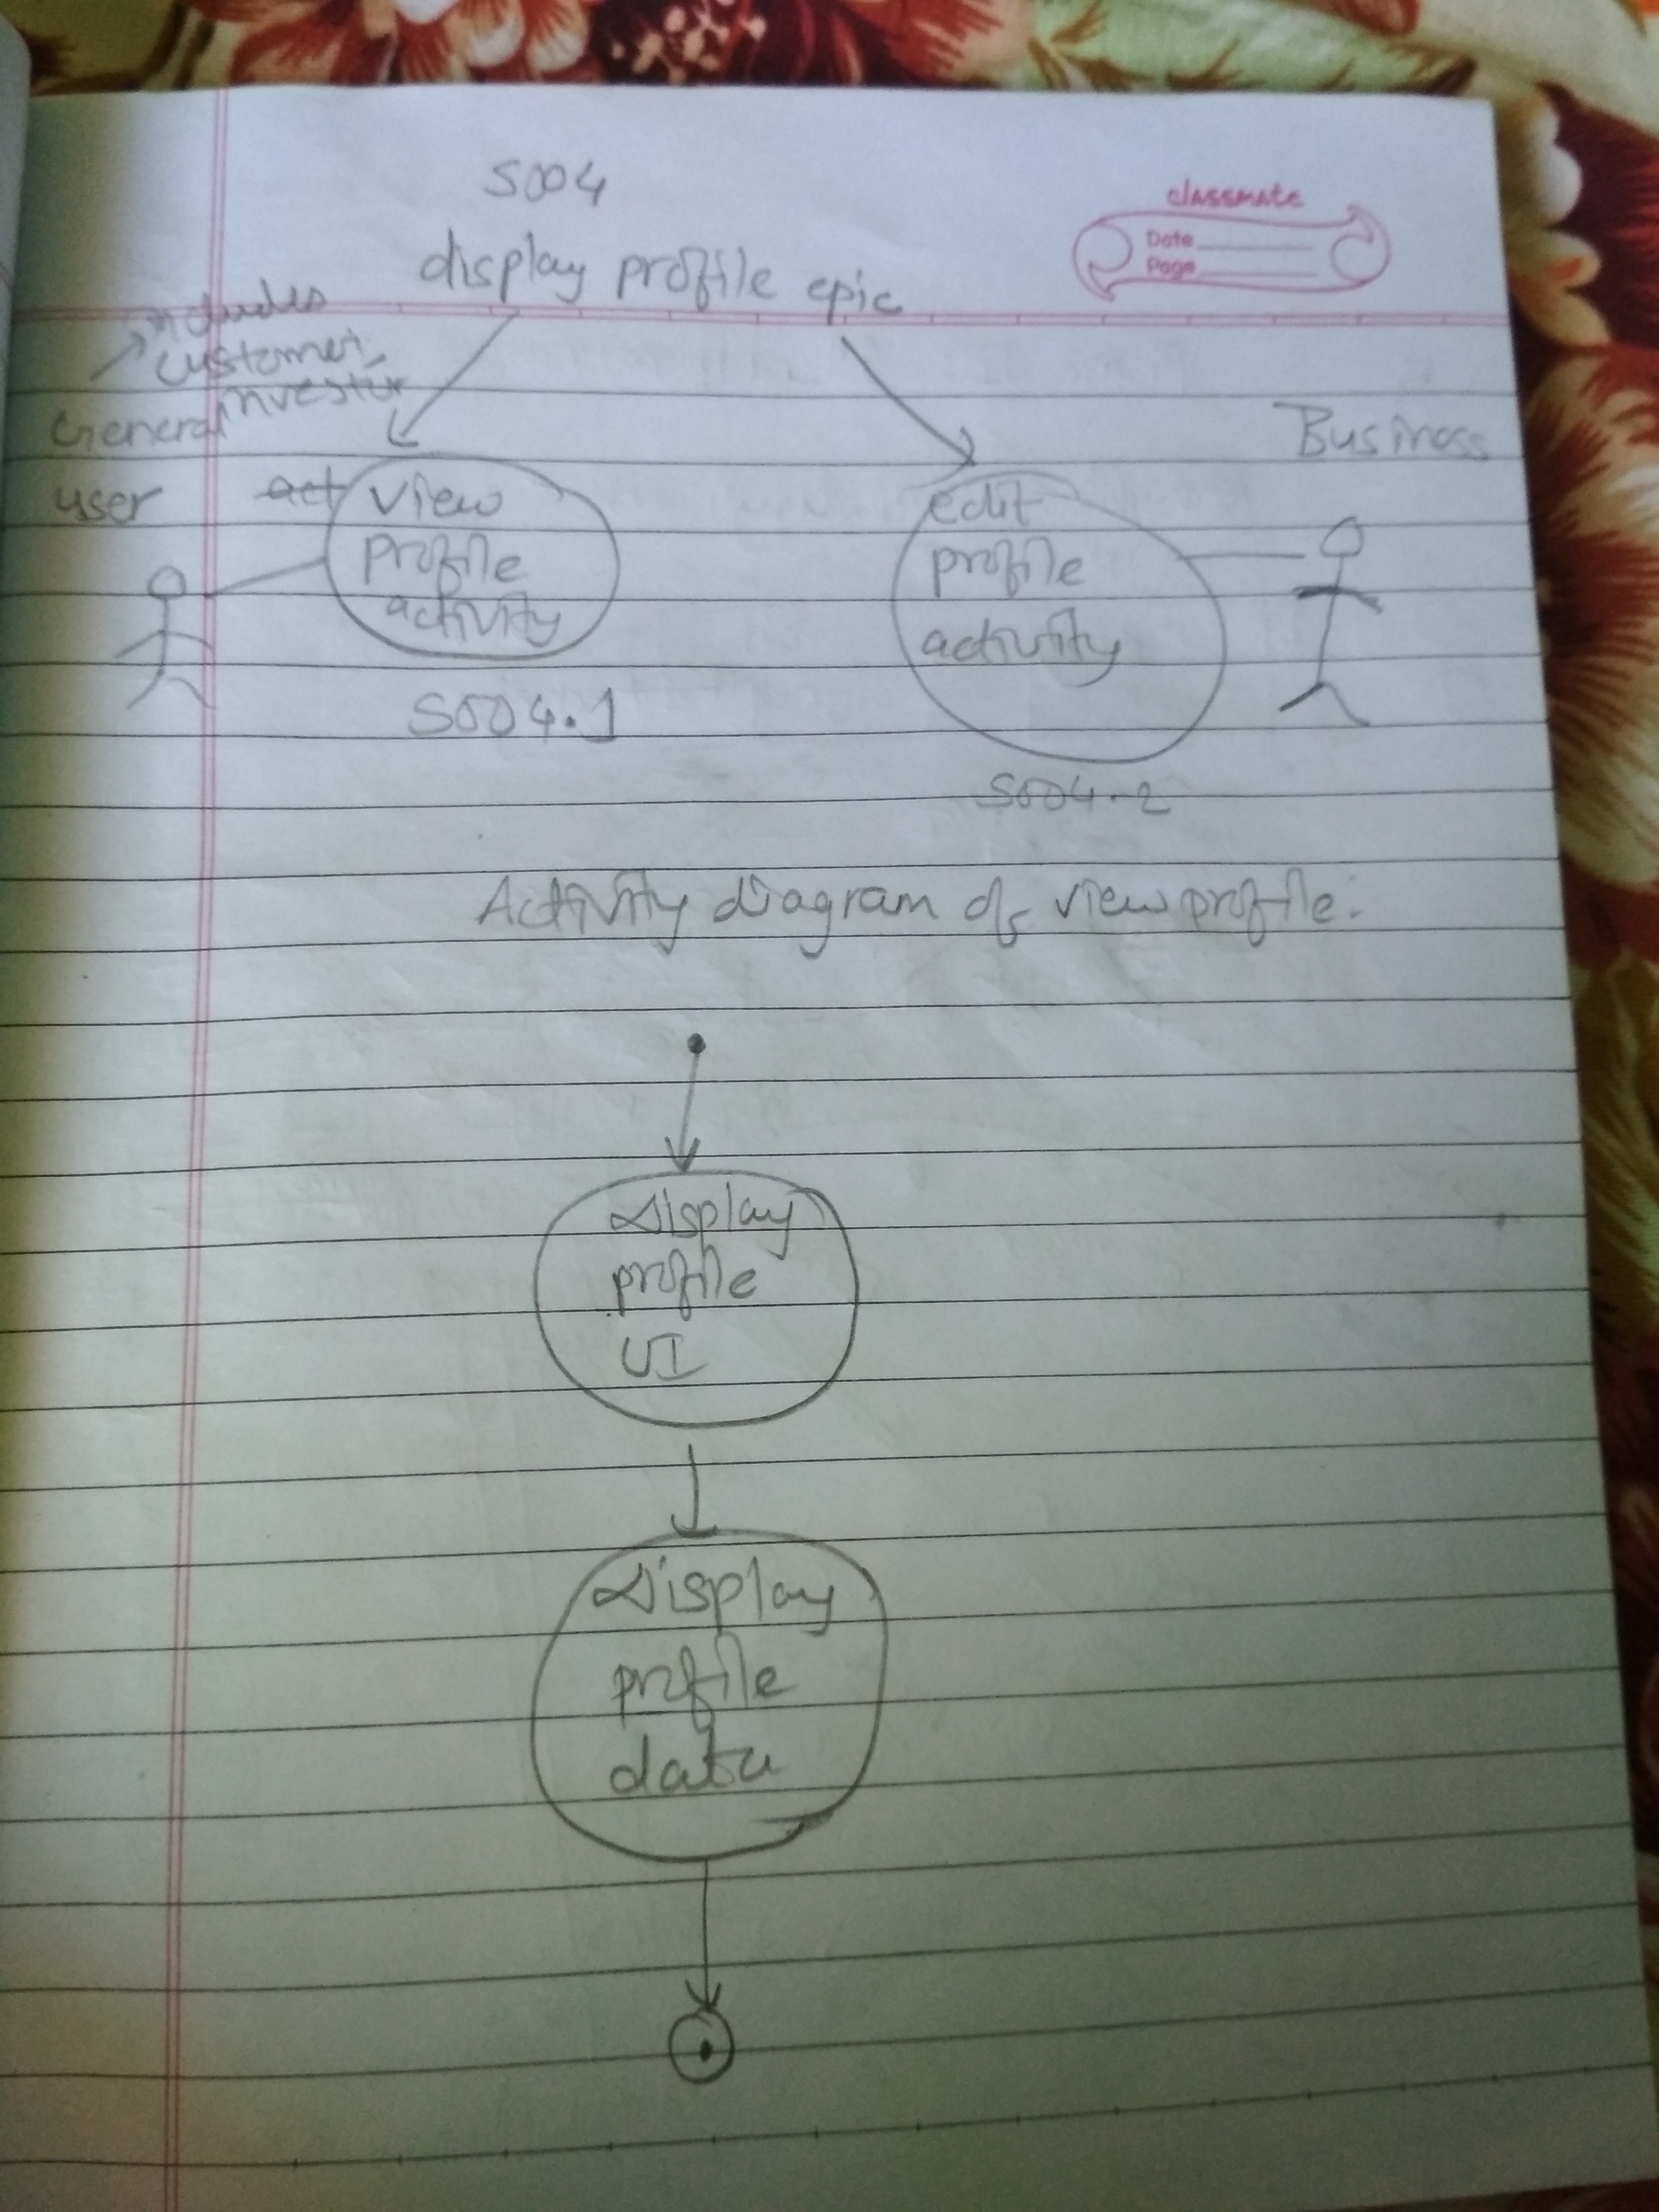 S004
classmate
Date
Page
display profile epic
includes
customer,
investor
General
user
Business
act view
profile
activity
S004.1
edit
profile
activity
S004.2
Activity diagram of view profile:
Display
profile
UI
Display
profile
data